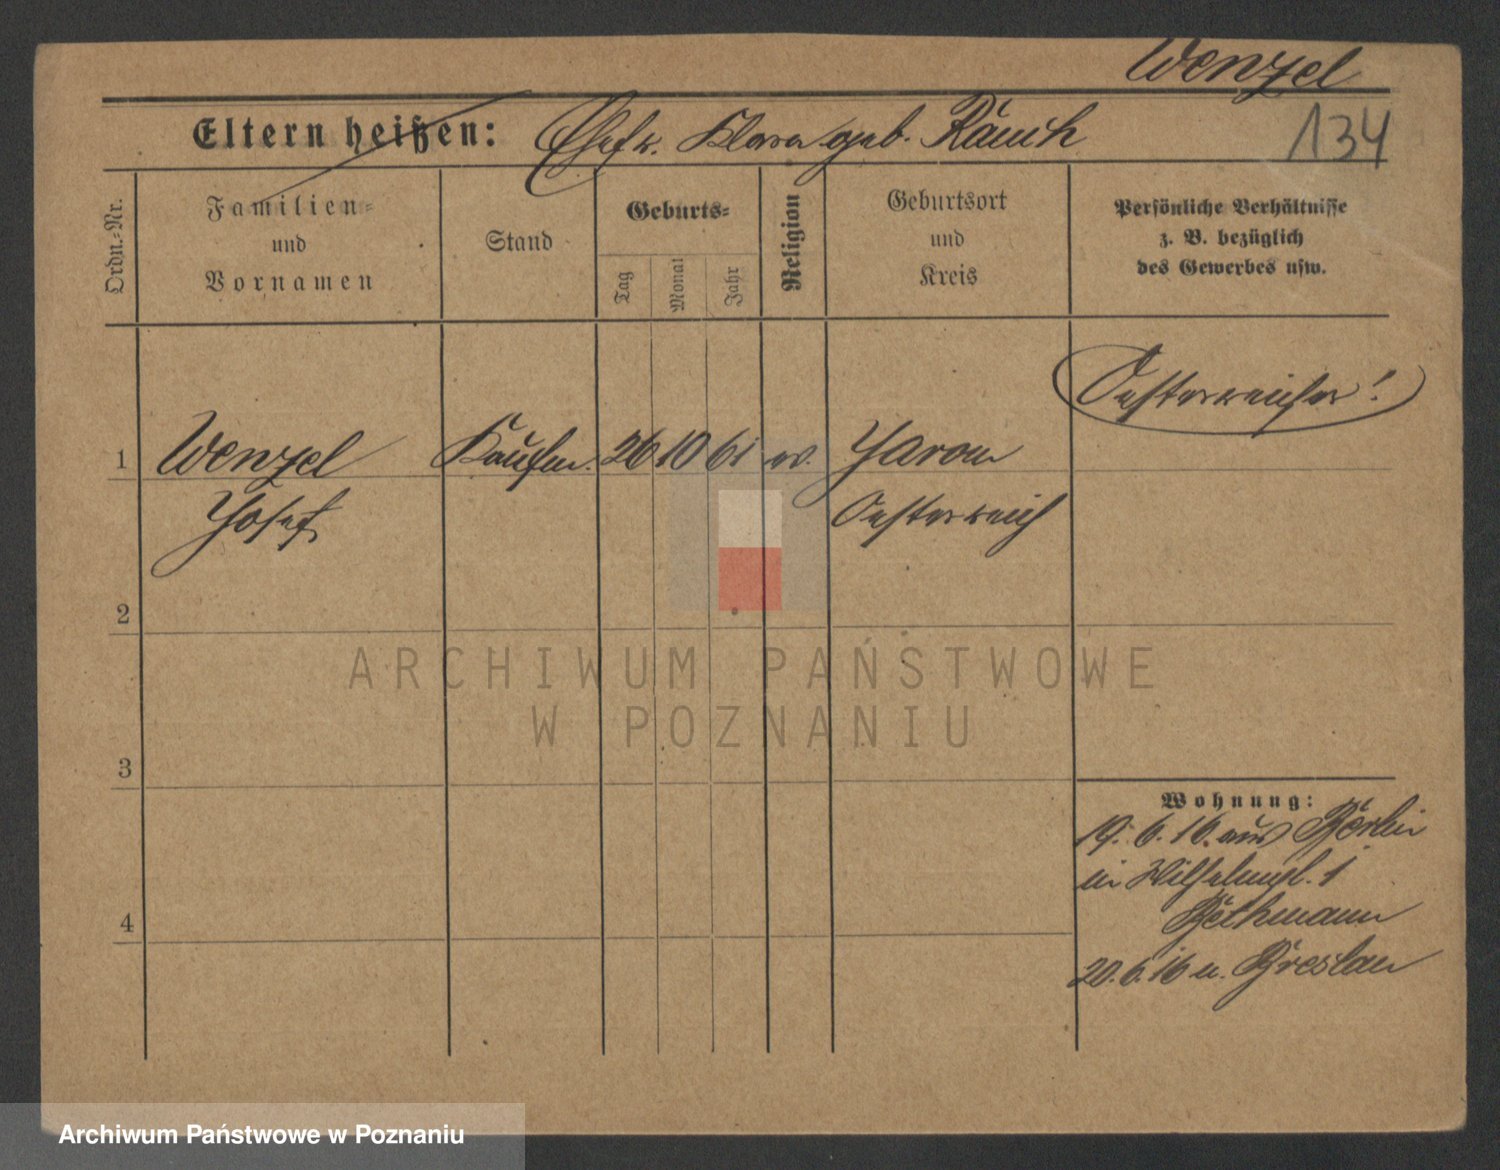 Wenzel
Eltern heißen: Ehefr. Klara geb. Räuch
134
Ordn.-Nr.
Familien-
und
Vornamen
Stand
Geburts-
Tag
Monat
Jahr
Religion
Geburtsort
und
Kreis
Persönliche Verhältnisse
z. B. bezüglich
des Gewerbes usw.
Oesterreicher!
1 Wenzel Kaufm. 26 10 61 Jarom
Josef Oesterreich
2
3
4
Wohnung:
19. 6. 16. aus Berlin
in Wilhelmspl. 1
Bethmann
20. 6. 16 n. Breslau
ARCHIWUM PAŃSTWOWE
W POZNANIU
Archiwum Państwowe w Poznaniu